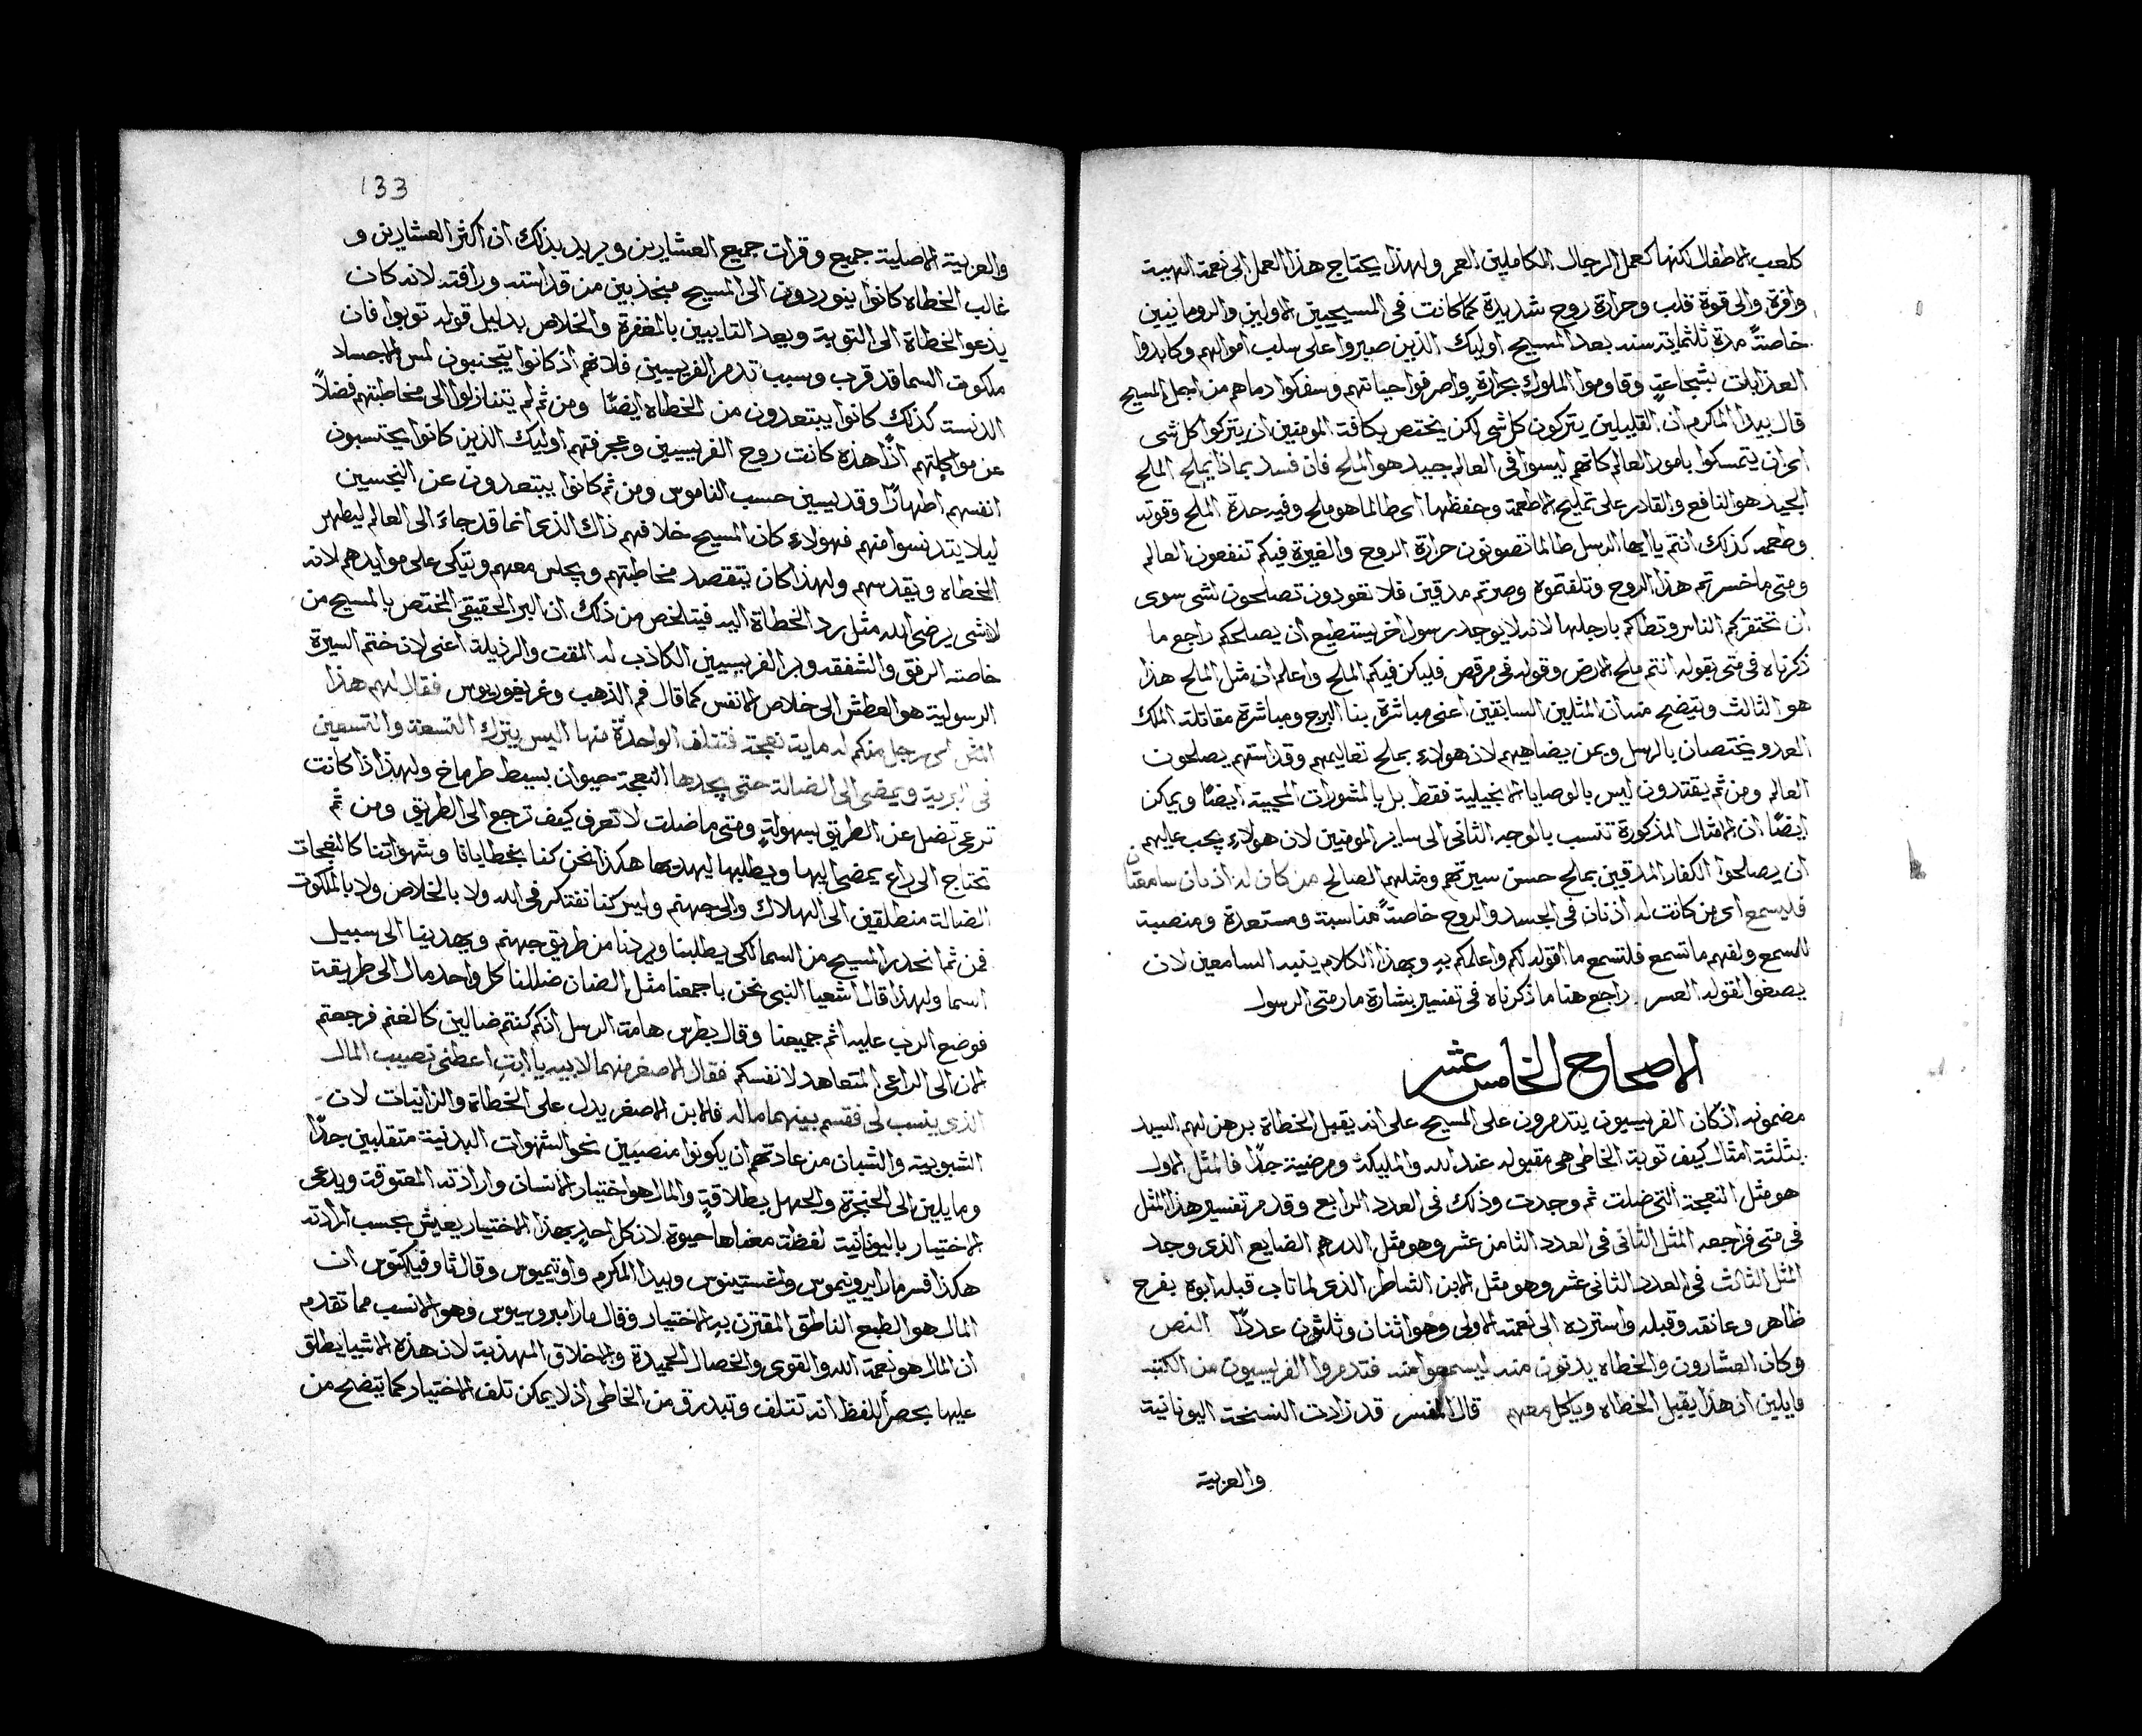 كلعب الاطفال لكنها كعمل الرجال الكاملين العمر ولهذا يحتاج هذا العمل الى نعمة الهية
وافرة والى قوة قلب وحرارة روح شديدة كما كانت فى المسيحيين الاولين والرومانيين
خاصتًا مدة ثلثماية سنه بعد المسيح اوليك الذين صبروا على سلب اموالهم وكابدوا
العذابات بشجاعةٍ وقاوموا الملوك بجراةٍ واصرفوا حياتهم وسفكوا دماهم من اجل المسيح
قال بيدا المكرم ان القليلين يتركون كل شى لكن يختص بكافة المومنين ان يتركوا كل شى
اى ان يتمسكوا بامور العالم كانهم ليسوا فى العالم جيد هو الملح فان فسد بماذا يملح الملح
الجيد هو النافع والقادر على تمليح الاطعمة وحفظها اى طالما هو ملح وفيه حدة الملح وقوته
وطعمه كذلك انتم يا ايها الرسل طالما تصونون حرارة الروح والغيرة فيكم تنفعون العالم
ومتى ما خسرتم هذا الروح وتلفتموه وصرتم مدقين فلا تعودون تصلحون لشى سوى
ان تحتقركم الناس وتطاكم بارجلها لانه لا يوجد رسول اخر يستطيع ان يصلحكم راجع ما
ذكرناه فى متى بقوله انتم ملح الارض وقوله فى مرقص فليكن فيكم الملح واعلم ان مثل الملح هذا
هو الثالث ويتضح منه ان المثلين السابقين اعنى مباشرة بنا البرج ومباشرة مقاتلة الملك
العدو يختصان بالرسل وبمن يضاهيهم لان هولاء بملح تعاليمهم وقداستهم يصلحون
العالم ومن ثم يقتدون ليس بالوصايا الانجيلية فقط بل بالمشورات المحيية ايضًا ويمكن
ايضًا ان الامثال المذكورة تنسب بالوجه الثانى الى ساير المومنين لان هولاء يجب عليهم
ان يصلحوا الكفار المدقين بملح حسن سيرتهم ومثلهم الصالح من كان له اذنان سامعتان
فليسمع اى من كانت له اذنان فى الجسد والروح خاصتًا مناسبة ومستعدة ومنصبة
للسمع ولفهم ما تسمع فلتسمع ما اقوله لكم واعلمكم بهِ وبهذا الكلام ينبه السامعين لان
يصغوا لقوله العسر راجع هنا ما ذكرناه فى تفسير بشارة مار متى الرسول
الاصحاح الخامس عشر
مضمونه اذ كان الفريسيون يتدمرون على المسيح على انه يقبل الخطاة برهن لهم السيد
بثلثة امثال كيف توبة الخاطى هى مقبوله عند الله والمليكة ومرضية جدًا فالمثل الاول
هو مثل النعجة التى ضلت ثم وجدت وذلك فى العدد الرابع وقد مر تفسير هذا المثل
فى متى فراجعه المثل الثانى فى العدد الثامن عشر وهو مثل الدرهم الضايع الذى وجد
المثل الثالث فى العدد الثانى عشر وهو مثل الابن الشاطر الذى لما تاب قبله ابوه بفرح
ظاهر وعانقه وقبله واسترده الى نعمته الاولى وهو اثنان وثلثون عددًا النص
وكان العشارون والخطاه يدنون منه ليسمعوا منه فتدمروا الفريسيون من الكتبه
قايلين ان هذا يقبل الخطاه وياكل معهم قال المفسر قد زادت النسخة اليونانية
والعربية
133
والعربية الاصلية جميع وقرات جميع العشارين ويريد بذلك ان اكثر العشارين و
غالب الخطاه كانوا يتوردون الى المسيح منجذبين من قداسته ورافته لانه كان
يدعو الخطاة الى التوبة ويعد التايبين بالمغفرة والخلاص بدليل قوله توبوا فان
ملكوت السما قد قرب وسبب تدمر الفريسيين فلانهم اذ كانوا يتجنبون لمس الاجساد
الدنسة كذلك كانوا يبتعدون من الخطاه ايضًا ومن ثم لم يتنازلوا الى مخاطبتهم فضلاً
عن مواكلتهم اذًا هذه كانت روح الفريسيين وعجرفتهم اوليك الذين كانوا يحتسبون
انفسهم اطهارًا وقديسين حسب الناموس ومن ثم كانوا يبتعدون عن النجسين
ليلا يتدنسوا منهم فهولاء كان المسيح خلافهم ذاك الذى انما قد جاء الى العالم ليطهر
الخطاه ويقدسهم ولهذا كان يتقصد مخاطبتهم ويجلس معهم ويتكى على موايدهم لانه
لا شى يرضى الله مثل رد الخطاة اليه فيتلخص من ذلك ان البر الحقيقى المختص بالمسيح من
خاصته الرفق والشفقه وبر الفريسيين الكاذب له المقت والرذيلة اعنى لان ختم السيرة
الرسولية هو العطش الى خلاص الانفس كما قال فم الذهب وغريغوريوس فقال لهم هذا
المثل اى رجل منكم له ماية نعجة فتتلف الواحدة منها اليس يترك التسعة والتسعين
فى البرية ويمضى الى الضالة حتى يجدها النعجة حيوان بسيط طرماخ ولهذا اذا كانت
ترعى تضل عن الطريق بسهولةٍ ومتى ما ضلت لا تعرف كيف ترجع الى الطريق ومن ثم
تحتاج الى راعٍ يمضى اليها ويطلبها ليهديها هكذا نحن كنا بخطايانا وشهواتنا كالنعجات
الضالة منطلقين الى الهلاك والى جهنم وليس كنا نفتكر فى الله ولا بالخلاص ولا بالملكوت
فمن ثم انحدر المسيح من السما لكى يطلبنا ويردنا من طريق جهنم ويهدينا الى سبيل
السما ولهذا قال اشعيا النبى نحن باجمعنا مثل الضان ضللنا كل واحد مال الى طريقة
فوضع الرب عليه اثم جميعنا وقال بطرس هامة الرسل انكم كنتم ضالين كالغنم فرجعتم
الان الى الراعى المتعاهد لانفسكم فقال الاصغر منهما لابيه يا ابتِ اعطنى نصيب المال
الذى ينسب لى فقسم بينهما ماله فالابن الاصغر يدل على الخطاة والزانيات لان
الشبوبية والشبان من عادتهم ان يكونوا منصبين نحو الشهوات البدنية متقلبين جدًا
ومايلين الى الحنجرة والجهل بطلاقةٍ والمال هو اختيار الانسان وارادته المعتوقة ويدعى
الاختيار باليونانية لفظة معناها حيوة لان كل احدٍ بهذا الاختيار يعيش بحسب ارادته
هكذا فسر مار ايرونيموس واغستينوس وبيدا المكرم واوتيميوس وقال ثاوفيلكتوس ان
المال هو الطبع الناطق المقترن بهِ الاختيار وقال مار امبروسيوس وهو الانسب مما تقدم
ان المال هو نعمة الله والقوى والخصال الحميدة والاخلاق المهذبة لان هذه الاشيا يطلق
عليها بحصر اللفظ انه تتلف وتبدرق من الخاطى اذ لا يمكن تلف الاختيار كما يتضح من